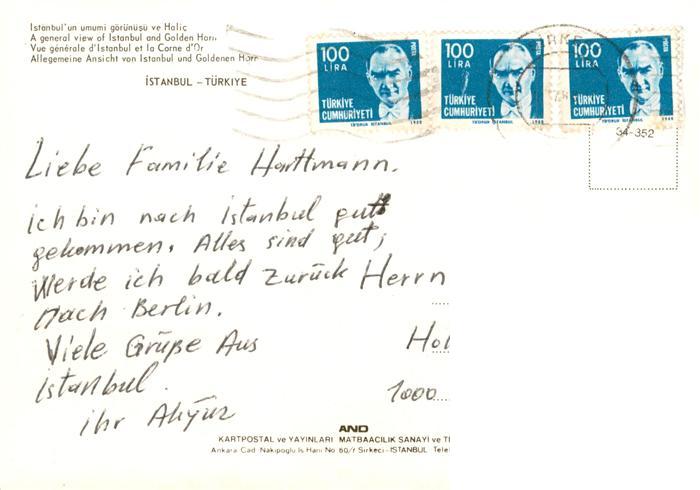 Istanbul'un umumi görünüsü ve Haliç
A general view of Istanbul and Golden Horn
Vue générale d'Istanbul et la Corne d'Or
Allegemeine Ansicht von Istanbul und Goldenen Horn
İSTANBUL – TÜRKIYE
100 LIRA
POSTA
TÜRKİYE CUMHURİYETİ
1980
100 LIRA
POSTA
TÜRKİYE CUMHURİYETİ
1980
100 LIRA
POSTA
TÜRKİYE CUMHURİYETİ
1980
34-352
Liebe Familie Harttmann.
ich bin nach istanbul gutt
gekommen. Alles sind gut;
Werde ich bald zurück
Nach Berlin.
Viele Grüße Aus
istanbul.
ihr Akyüz
Herrn
Hol
1000
AND
KARTPOSTAL ve YAYINLARI MATBAACILIK SANAYİ ve Tİ
Ankara Cad. Nakipoglu Is Hanı No 60/f Sirkeci-ISTANBUL Tele